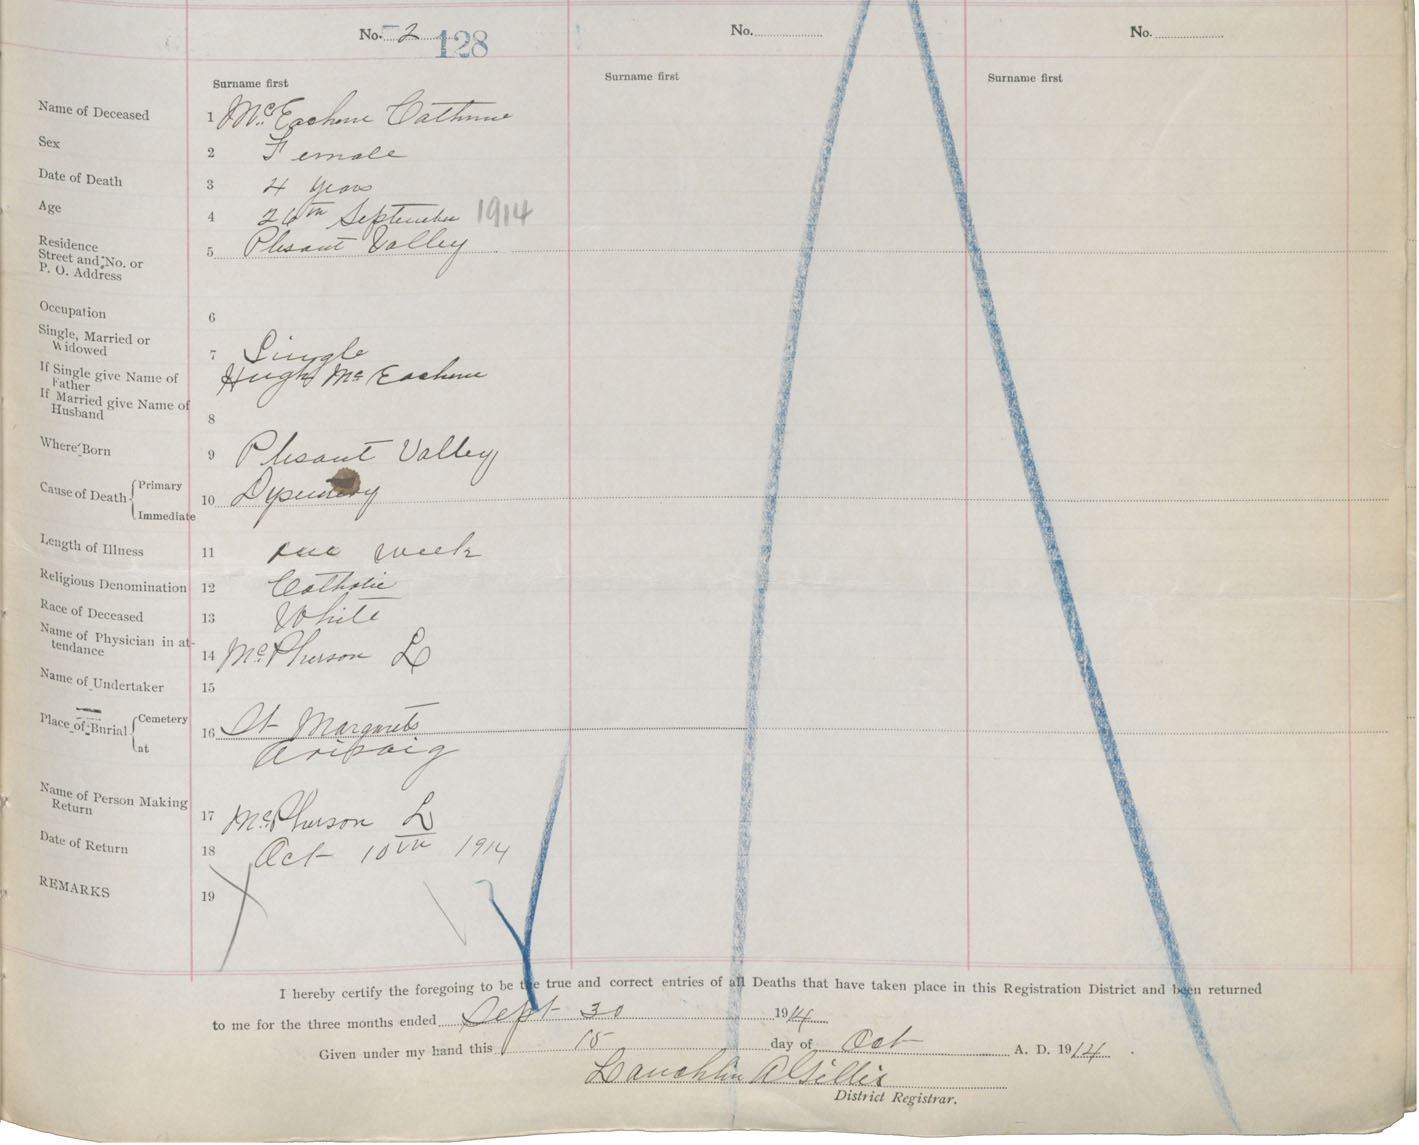 No. 2 128 No. No.
Surname first Surname first Surname first
Name of Deceased 1 McEachern Catherine
Sex 2 Female
Date of Death 3 4 years
Age 4 26th September 1914
Residence
Street and No. or 5 Plesant Valley
P. O. Address
Occupation 6
Single, Married or
Widowed 7 Single
If Single give Name of
Father Hugh McEachern
If Married give Name of
Husband 8
Where Born 9 Plesant Valley
Cause of Death { Primary 10 Dysentery
Immediate
Length of Illness 11 one week
Religious Denomination 12 Catholic
Race of Deceased 13 White
Name of Physician in at-
tendance 14 McPherson L
Name of Undertaker 15
Place of Burial { Cemetery 16 St Margarets
at Arisaig
Name of Person Making
Return 17 McPherson L
Date of Return 18 Oct 10th 1914
REMARKS 19
I hereby certify the foregoing to be the true and correct entries of all Deaths that have taken place in this Registration District and been returned
to me for the three months ended Sept 30 1914
Given under my hand this 15 day of Oct A. D. 1914.
Lauchlin A Gillis
District Registrar.